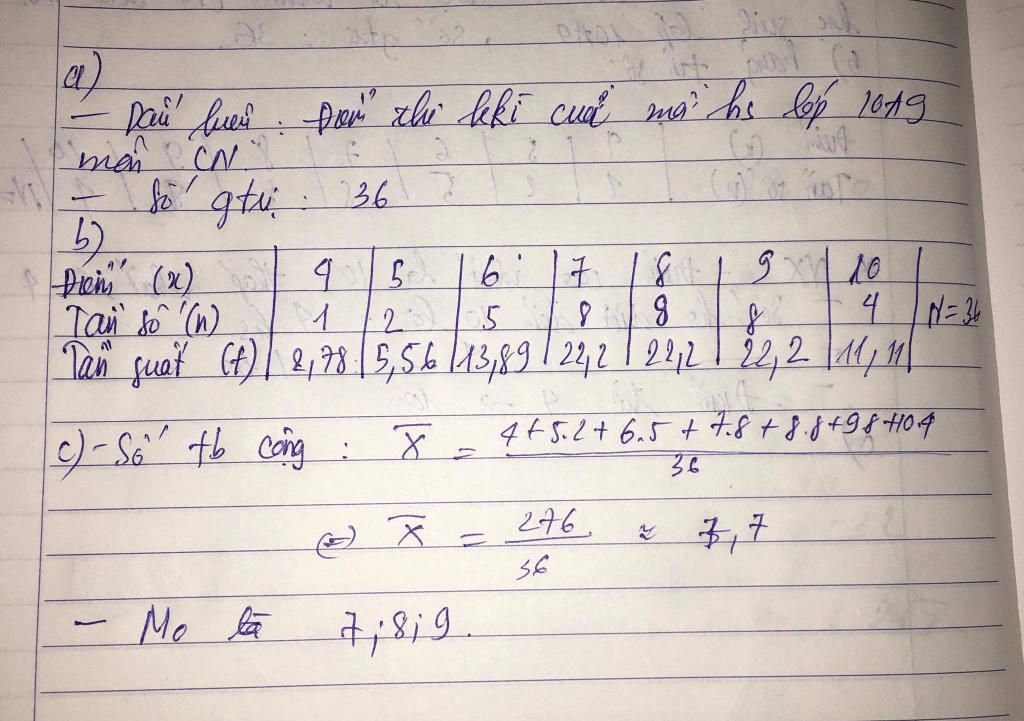 a)
- Dấu hiệu : Điểm thi hkì của mỗi hs lớp 10A9
môn CN.
- Số gtrị : 36
b)
Điểm (x) | 4 | 5 | 6 | 7 | 8 | 9 | 10
Tần số (n) | 1 | 2 | 5 | 8 | 8 | 8 | 4 | N = 36
Tần suất (f) | 2,78 | 5,56 | 13,89 | 22,2 | 22,2 | 22,2 | 11,11
c) - Số tb cộng : X̅ = (4+5.2+6.5+7.8+8.8+9.8+10.4)/36
⇔ X̅ = 276/36 ≈ 7,7
- Mo là 7;8;9.